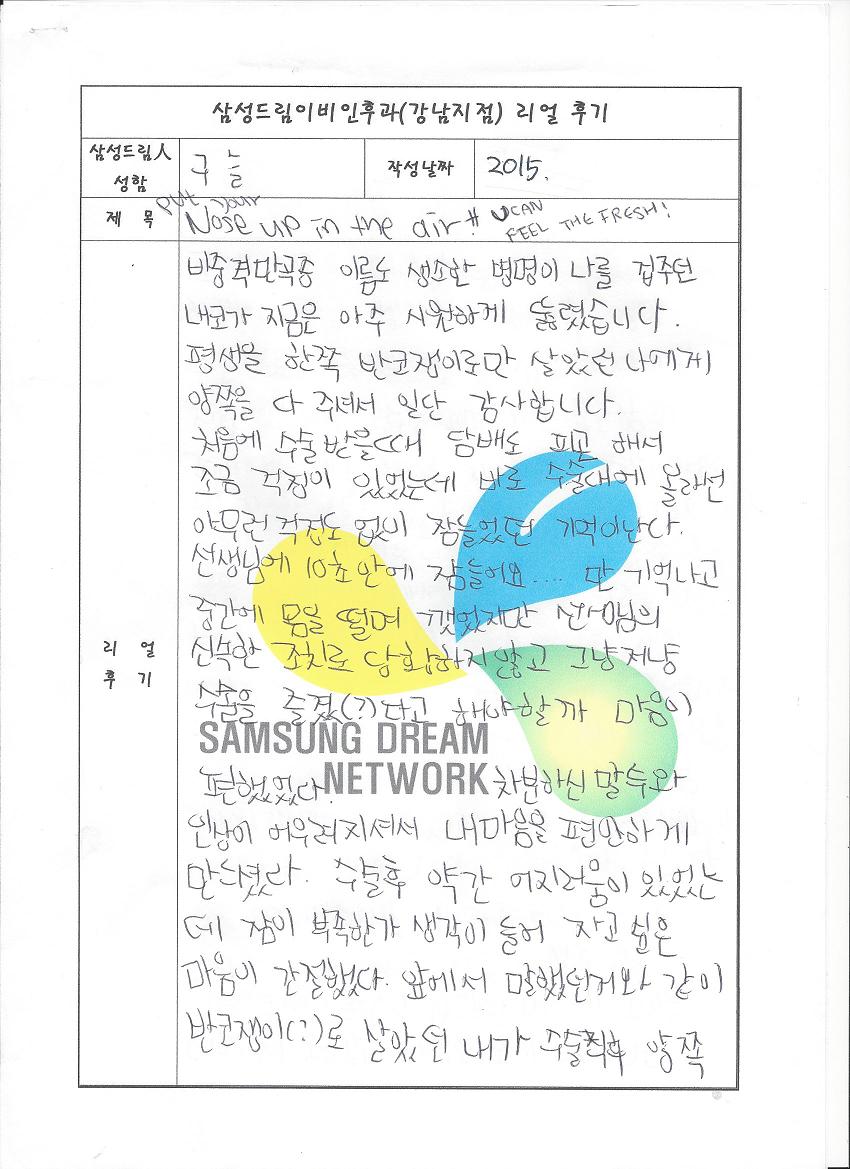 삼성드림이비인후과(강남지점) 리얼 후기
삼성드림人 성함
구늘
작성날짜
2015.
제 목
put your
Nose up in the air!! U CAN
FEEL THE FRESH!
리 얼
후 기
비중격만곡증 이름도 생소한 병명이 나를 겁주던
내코가 지금은 아주 시원하게 뚫렸습니다.
평생을 한쪽 반코쟁이로만 살았던 나에게
양쪽을 다 주셔서 일단 감사합니다.
처음에 수술 받을때 담배도 피고 해서
조금 걱정이 있었는데 바로 수술대에 올라선
아무런 걱정도 없이 잠들었던 기억이난다.
선생님에 10초안에 잠들어요.... 만 기억나고
중간에 몸을 떨며 깼었지만 선생님의
신속한 조치로 당황하지않고 그냥저냥
수술을 즐겼(?)다고 해야할까 마음이
SAMSUNG DREAM
NETWORK
편했었다. 차분하신 말투와
인상이 어우러지셔서 내마음을 편안하게
만드셨다. 수술후 약간 어지러움이 있었는
데 잠이 부족한가 생각이 들어 자고 싶은
마음이 간절했다. 앞에서 말했던거와 같이
반코쟁이(?)로 살았던 내가 수술 후 양쪽